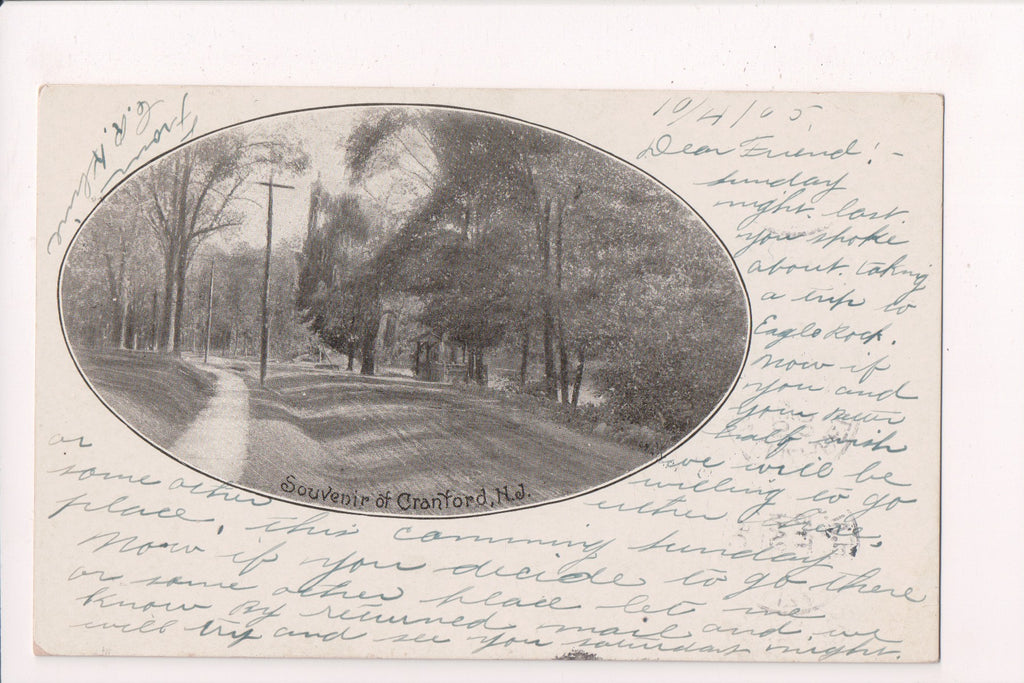 10/4/05
Dear Friend! -
sunday
night last.
you spoke
about. taking
a trip to
Eagle Rock.
now if
you and
your better
half wish
we will be
willing to go
either there
or
some other
place, this comming sunday
Now if you decide to go there
or some other place let me
know By returned mail and we
will try and see you saturday night.
From
Souvenir of Cranford, N.J.